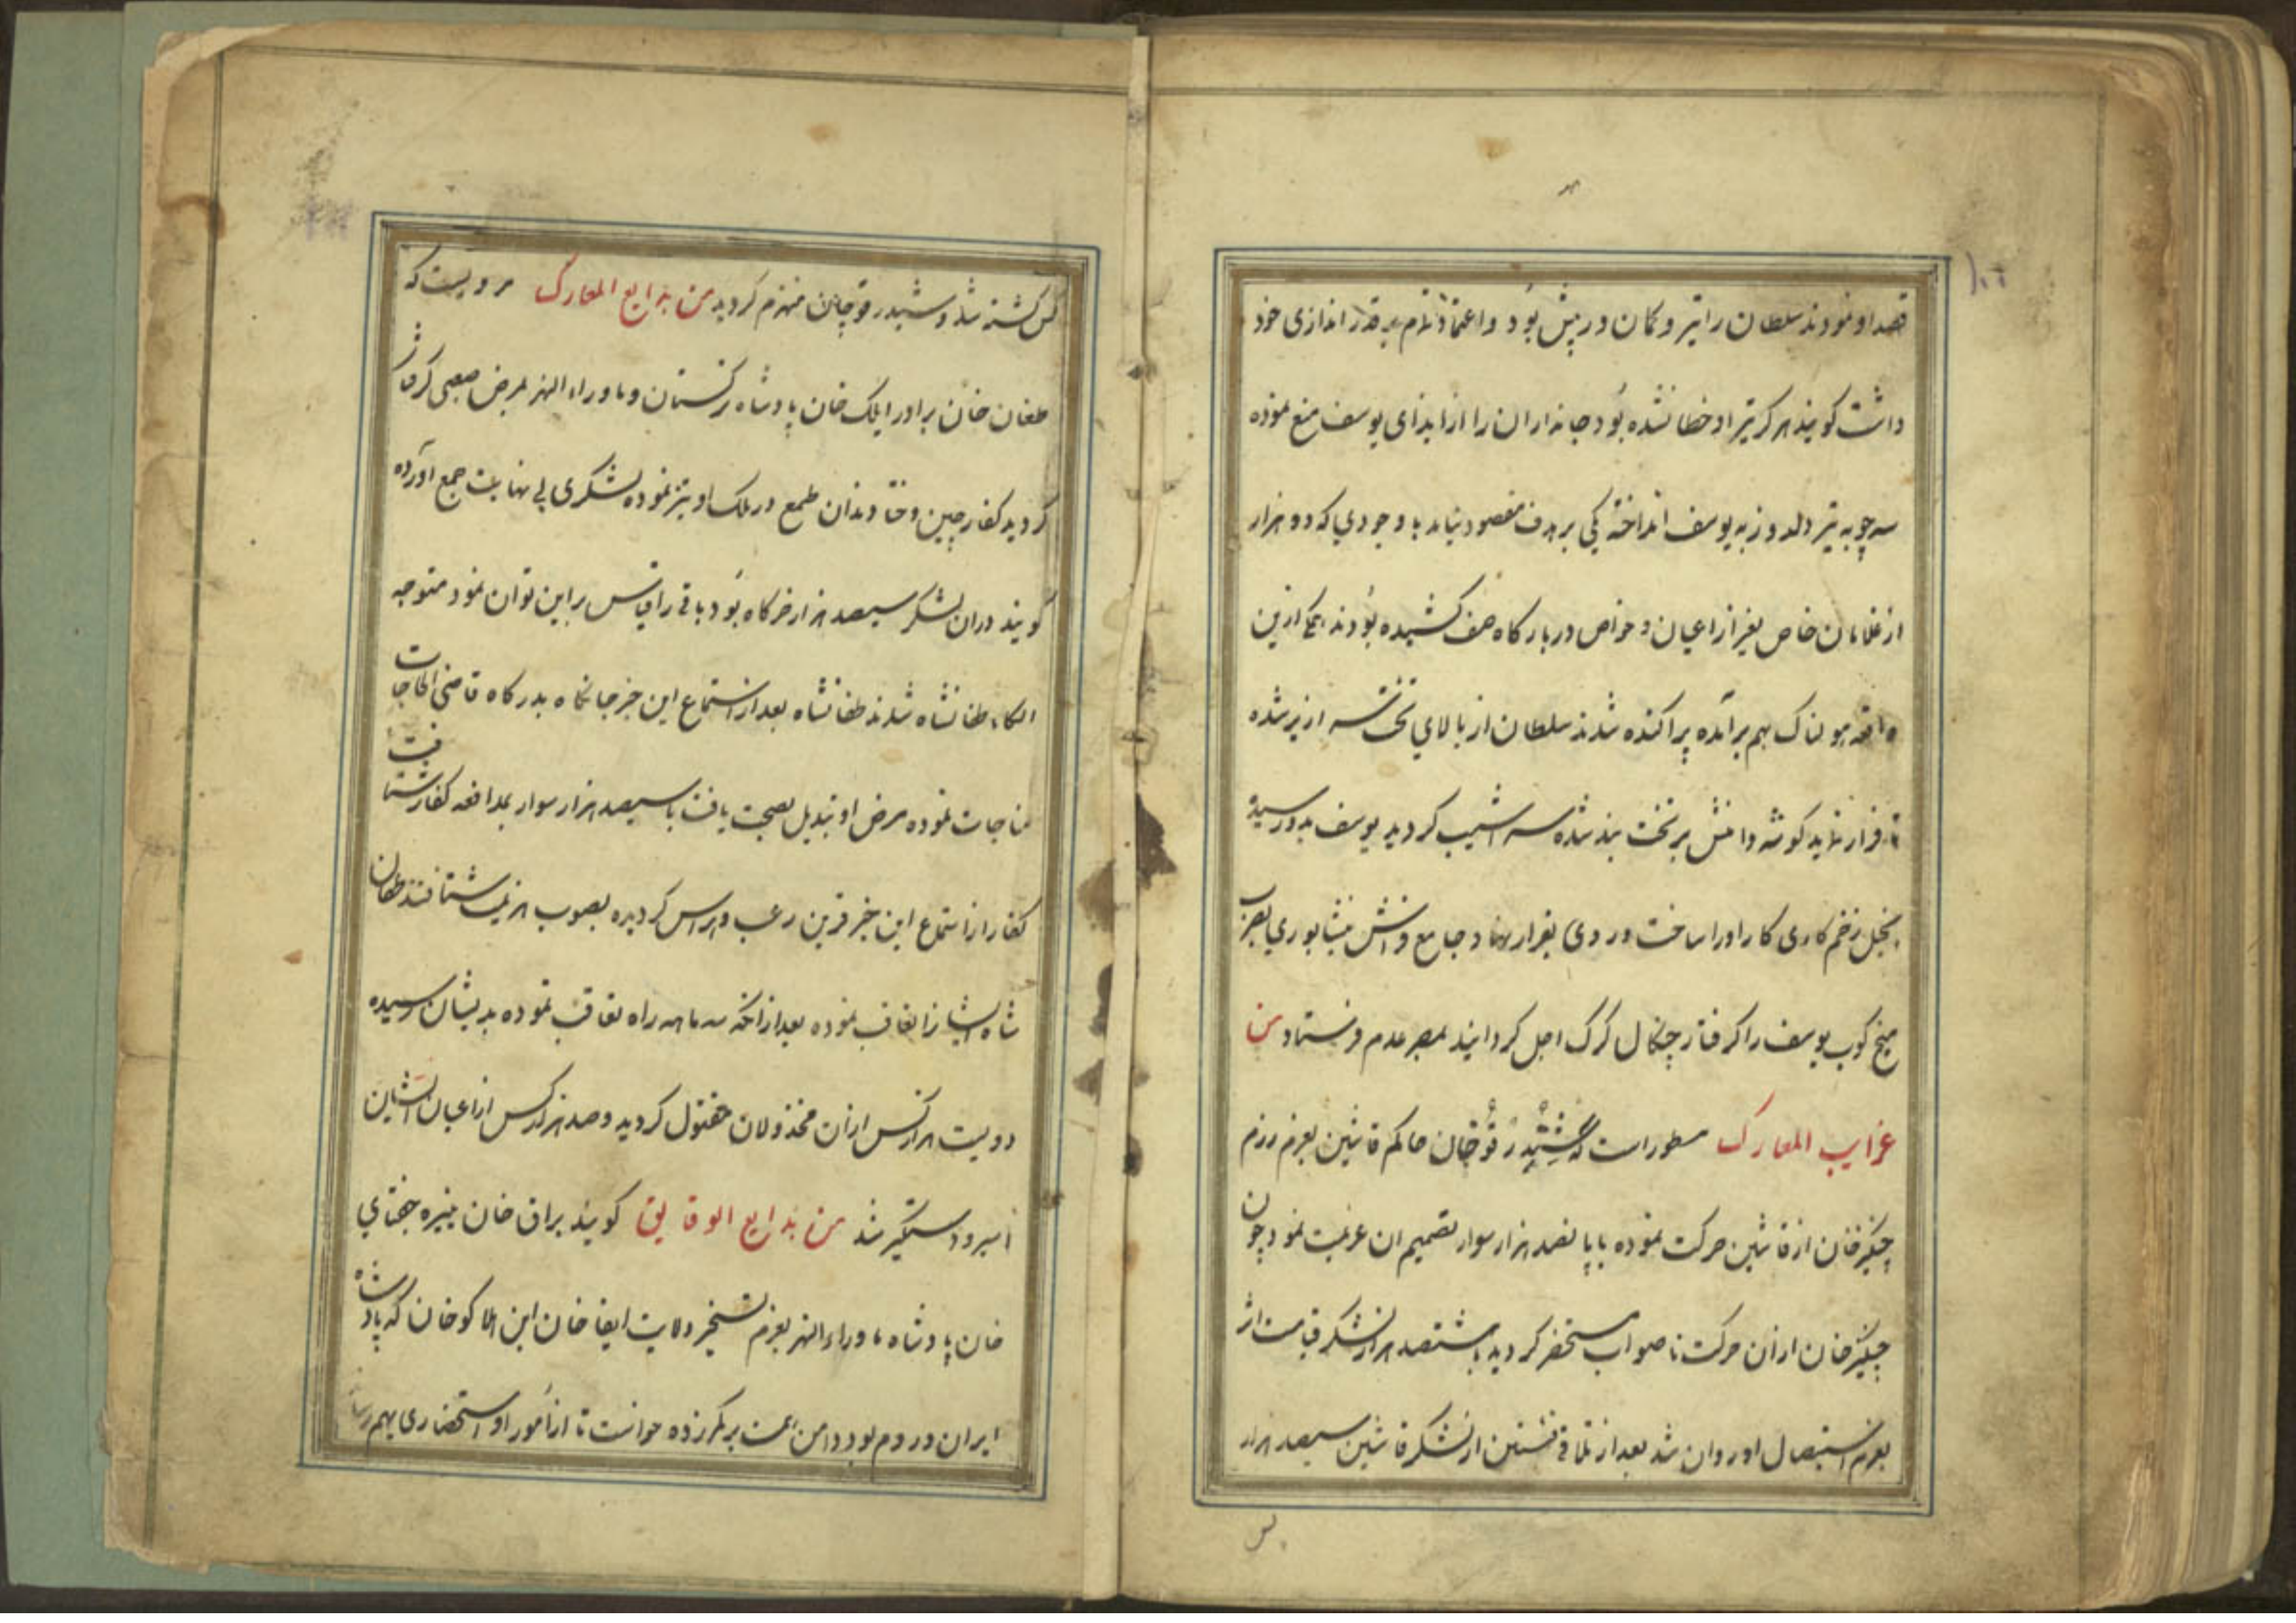 قصد او نمودند سلطان را تیر و کمان در پیش بود و اعتماد تمام به قدر اندازی خود
داشت کویند هرکز تیر او خطا نشده بود جانداران را از ایذای یوسف منع نموده
سه چوبه تیر دلدوز به یوسف انداخته یکی بر هدف مقصود نیامد با وجودي که دو هزار
از غلامان خاص بغیر از اعیان و خواص در بارکاه صف کشیده بودند همکی ازین
واقعه هولناک بهم برآمده پراکنده شدند سلطان از بالای تخت بزیر شده
تا فرار نماید کوشه دامنش بر تخت بند شده سراشیب کردید یوسف بدو رسیده
زخم کاری کار او را ساخت و روی بفرار نهاد جامع فراش نیشابوري بضرب
میخ کوب یوسف را کرفتار چنکال کرک اجل کردانید بمصر عدم فرستاد من
غرایب المعارک مسطور است که شیدرقوخان حاکم قاشین بعزم رزم
چنکیز خان از قاشین حرکت نموده با پانصد هزار سوار تصمیم ان عزیمت نمود چون
چنکیز خان از ان حرکت ناصواب مستحضر کردید با هشتصد هزار لشکر قیامت اثر
بعزم استیصال او روان شد بعد از تلاقی فئتین از لشکر قاشین سیصد هزار
کس
کس کشته شد و شیدرقوخان منهزم کردید من بدایع المعارک مرویست که
طغان خان برادر ایلک خان پادشاه ترکستان و ماوراء النهر بمرض صعبی کرفتار
کردید کفار چین و ختا دندان طمع در ملک او تیز نموده لشکری بی نهایت جمع آورده
کویند دران لشکر سیصد هزار خرکاه بود باقی را قیاس براین توان نمود متوجه
الکاء طغانشاه شدند طغانشاه بعد از استماع این خبر جانکاه بدرکاه قاضی الحاجات
مناجات نموده مرض او تبدیل بصحت یافت با سیصد هزار سوار بمدافعه کفار شتافت
کفار از استماع این خبر قرین رعب و هراس کردیده بصوب هزیمت شتافتند طغان
شاه ایشانرا تعاقب نموده بعد از انکه سه ماهه راه تعاقب نموده بدیشان رسیده
دویست هزار کس ازان مخذولان مقتول کردید و صد هزار کس از اعیان ایشان
اسیر و دستکیر شد من بدایع الوقایع کویند براق خان نبیره جغتاي
خان پادشاه ماوراء النهر بعزم تسخیر ولایت ابقا خان ابن هلاکو خان که پادشاه
ایران و روم بود دامن همت بر کمر زده خواست تا از امور او استحضاری بهم رساند